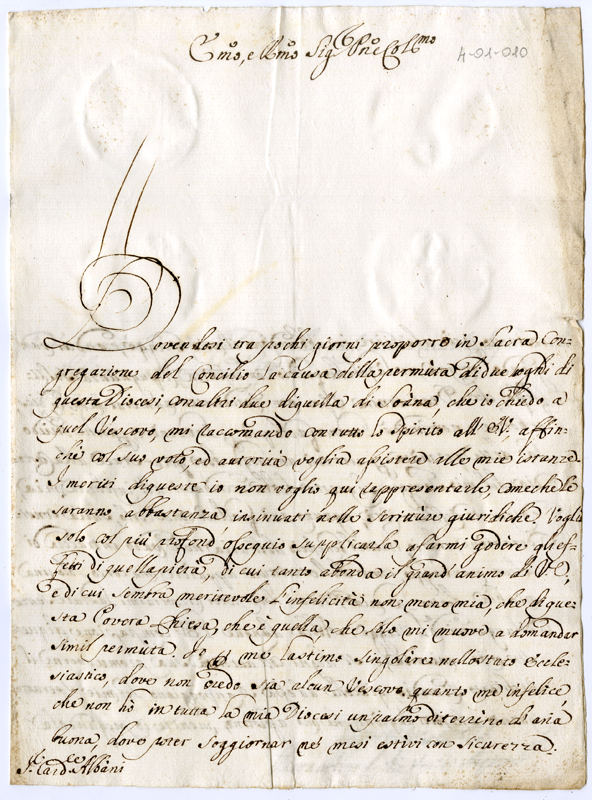 Emo, e Rmo Sig. Pne Colmo
4-01-010
Dovendosi tra pochi giorni proporre in Sacra Con-
gregazione del Concilio la causa della permuta di due loghi di
questa Diocesi, con altri due di quella di Soana, che io chiedo a
quel Vescovo, mi raccomando con tutto lo Spirito all' E.V. affin-
chè col suo voto, ed autorità voglia assistere alle mie istanze.
I meriti di queste io non voglio qui rappresentarle, comechè le
saranno abbastanza insinuati nelle scritture giuridiche. Voglio
solo col più profond ossequio supplicarla a farmi godere gl' ef-
fetti di quella pietà, di cui tanto abonda il grand' animo di V.E,
e di cui sembra meritevole l'infelicità non meno mia, che di que-
sta Povera Chiesa, che è quella, che solo mi muove a domandar
simil permuta. Io me lastimo singolare nello Stato Eccle-
siastico, dove non credo sia alcun Vescovo quanto me infelice,
che non hò in tutta la mia Diocesi un palmo di terreno d' aria
buona, dove poter soggiornar ne' mesi estivi con sicurezza.
Card. Albani